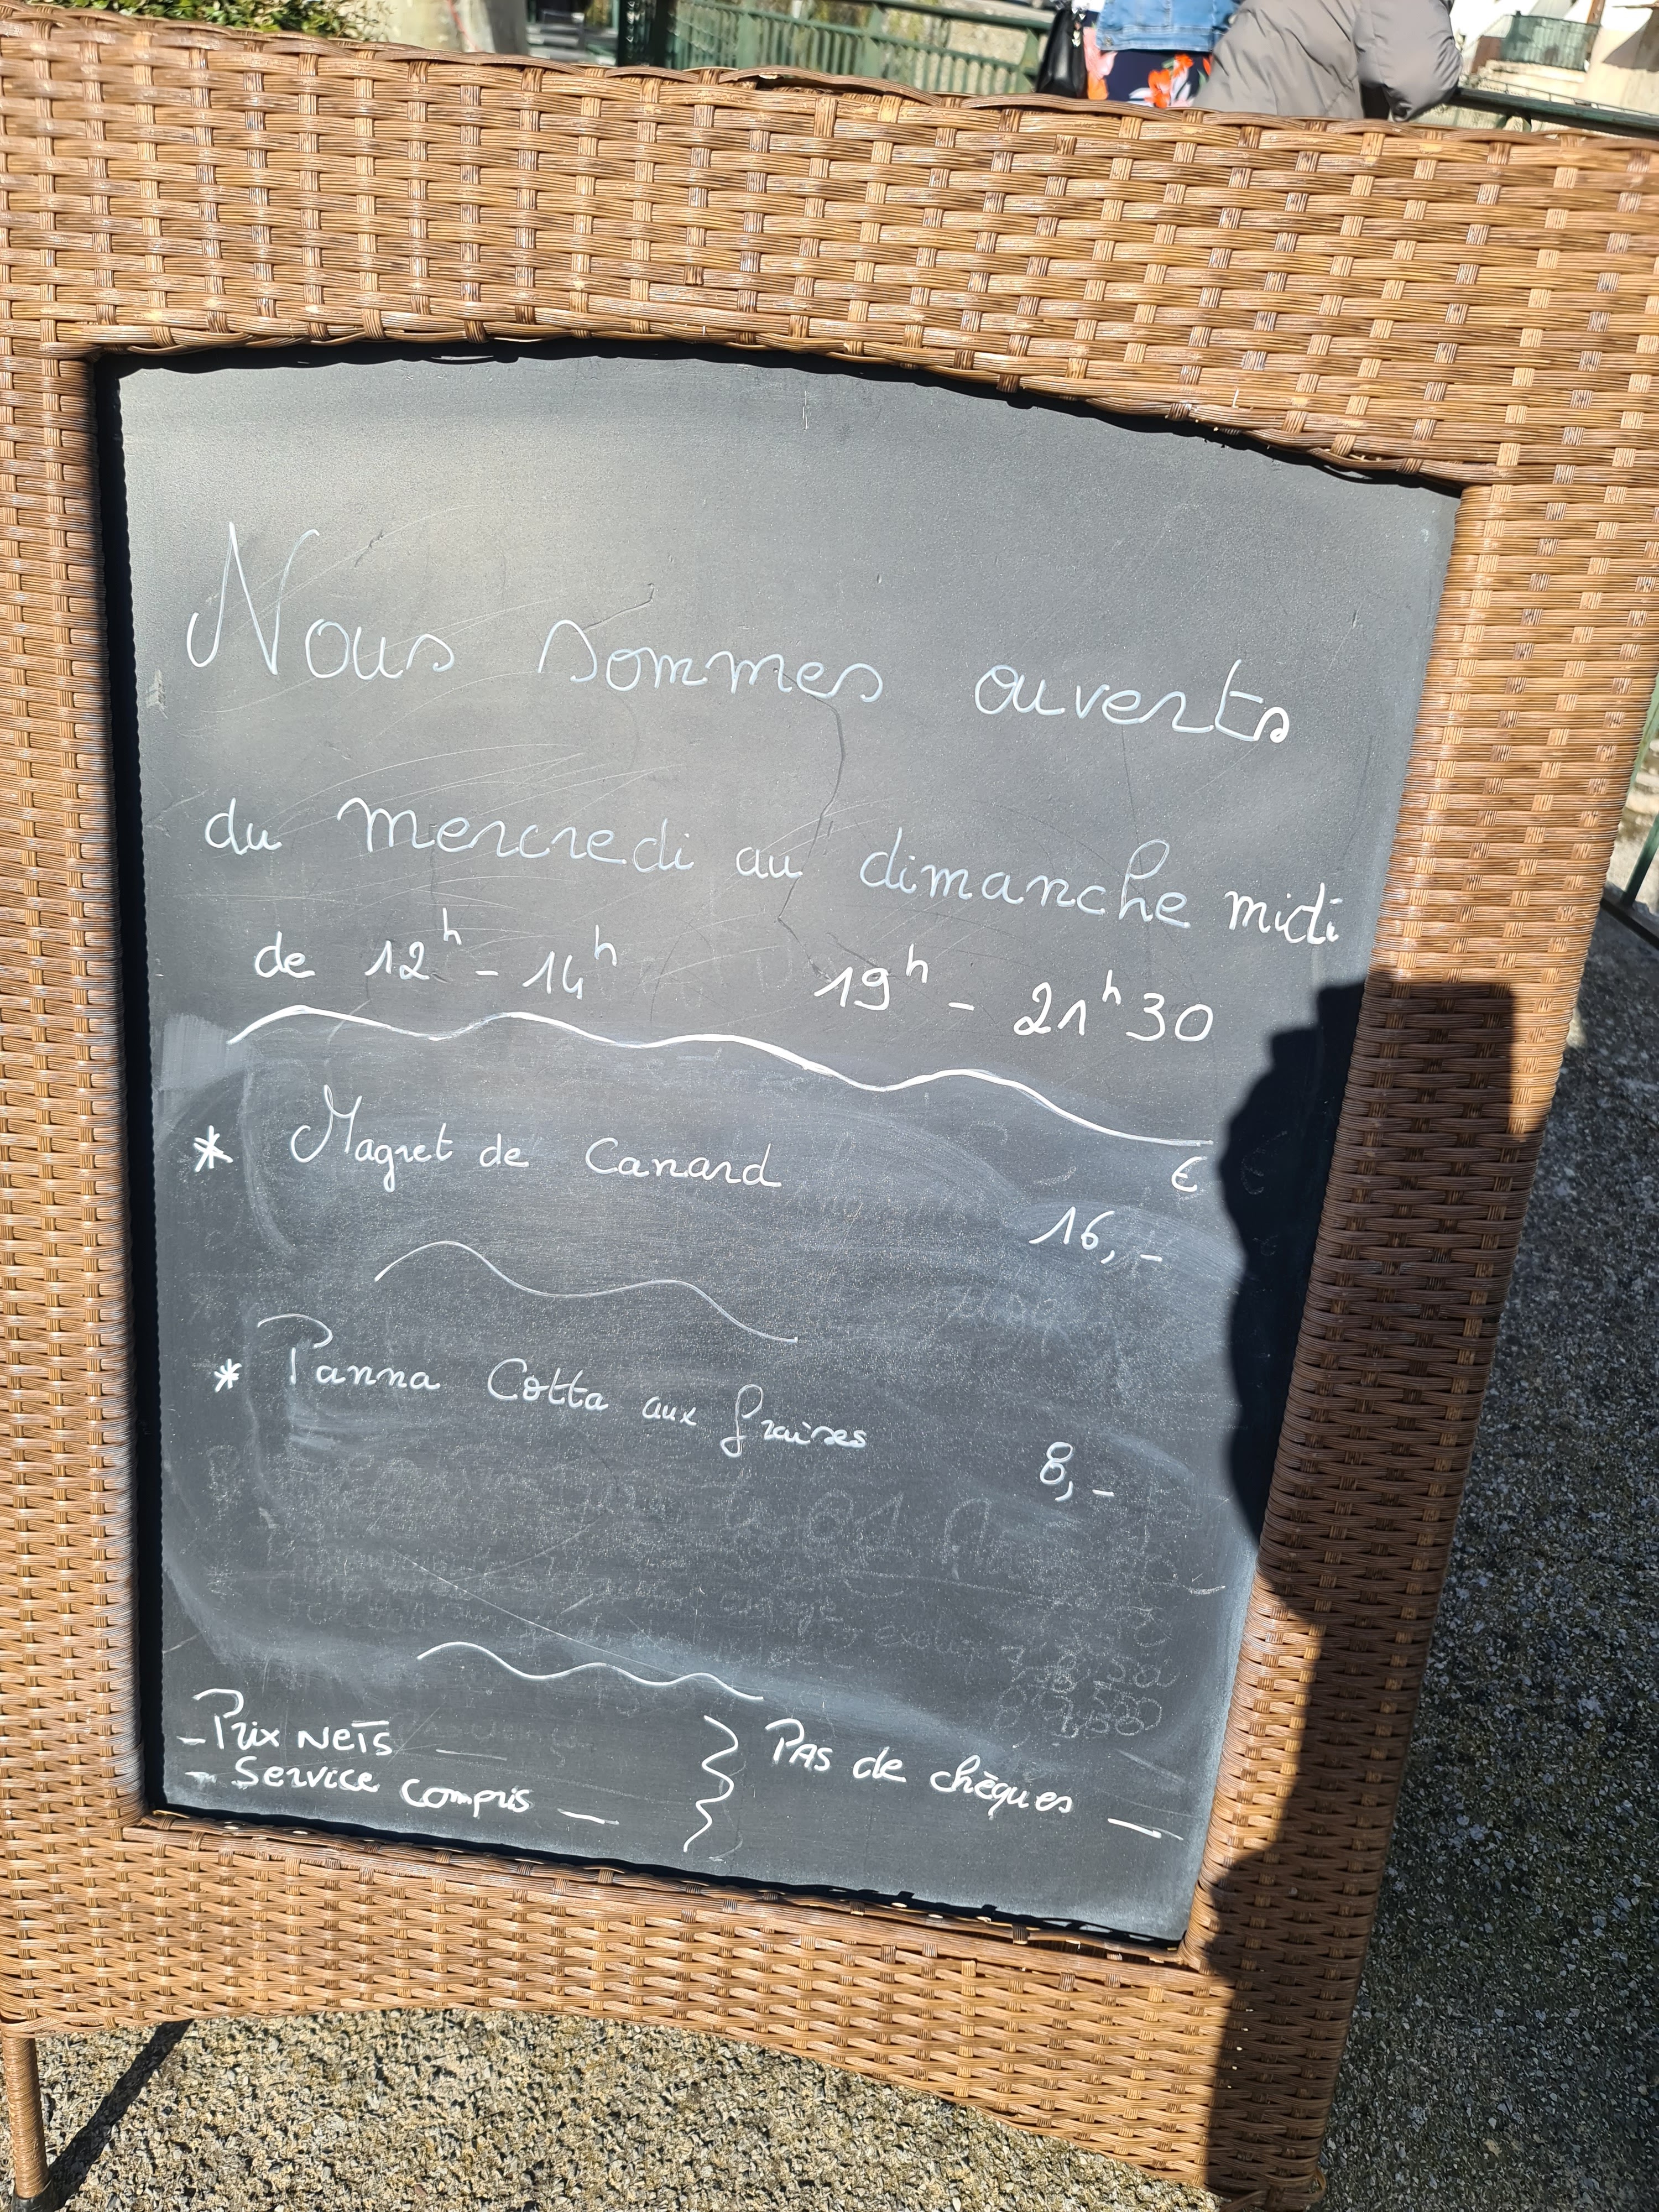 Nous sommes ouverts
du mercredi au dimanche midi
de 12h - 14h 19h - 21h30
* Magret de Canard €
16,-
* Panna Cotta aux fraises
8,-
- Prix NETS -
- Service compris -
Pas de chèques -